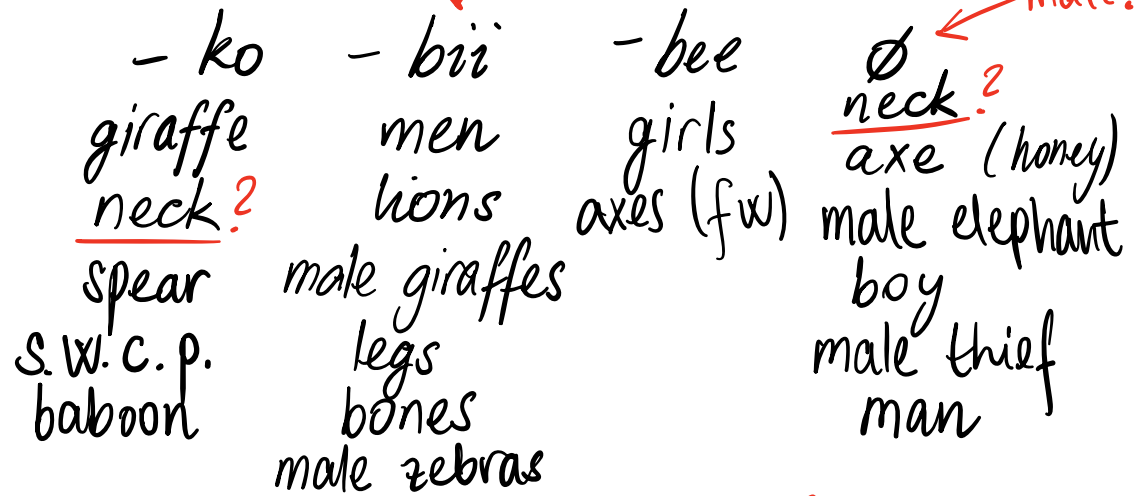 male?
- ko
giraffe
neck?
spear
s.w.c.p.
baboon
- bii
men
lions
male giraffes
legs
bones
male zebras
- bee
girls
axes (fw)
Ø
neck?
axe (honey)
male elephant
boy
male thief
man